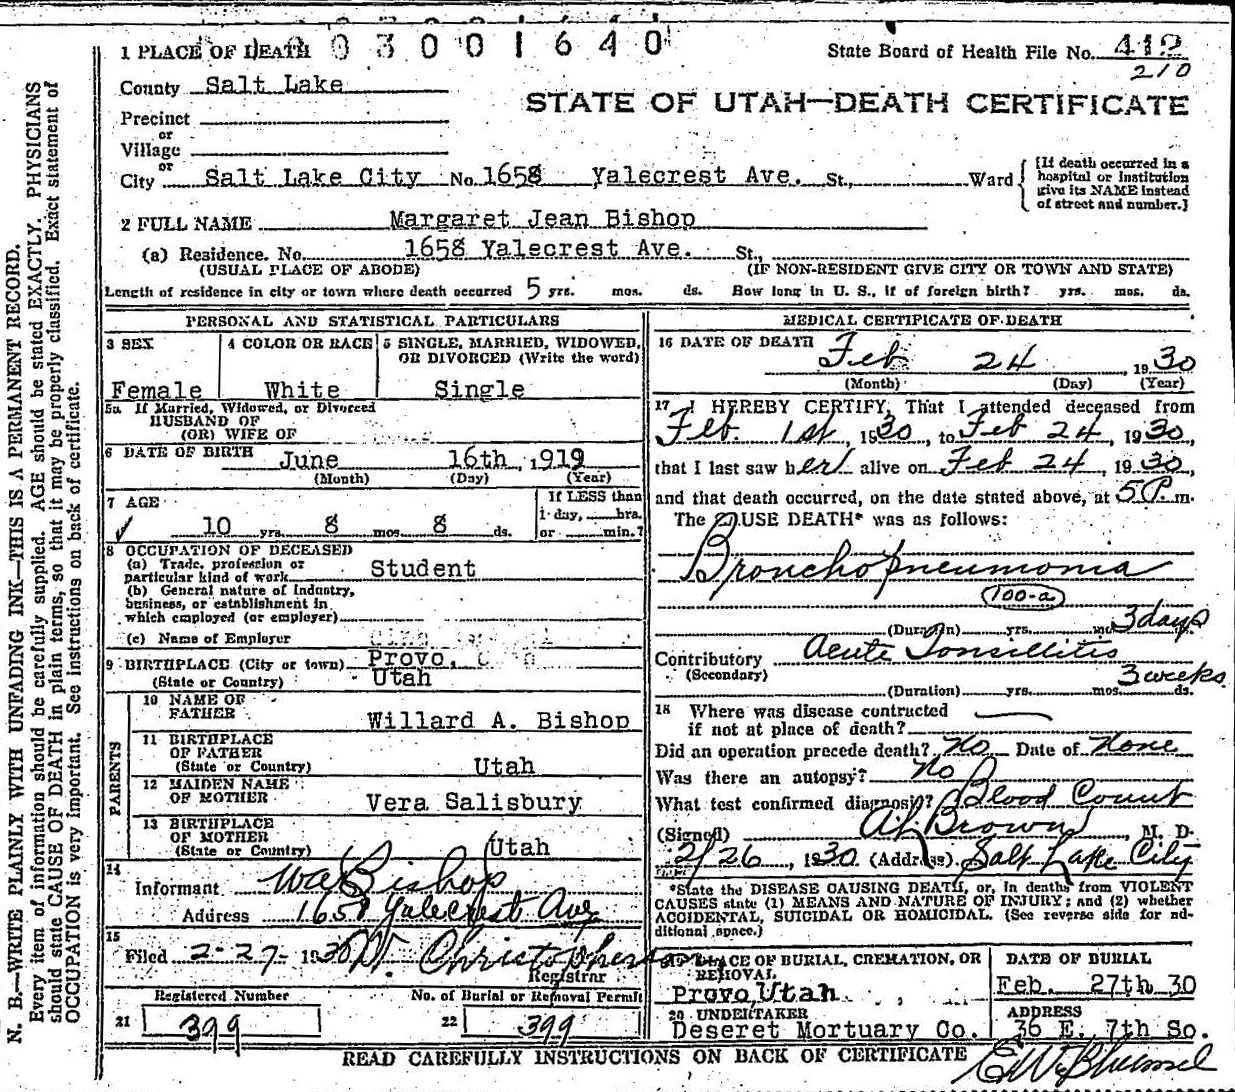 03001640
1 PLACE OF DEATH
State Board of Health File No. 412
210
County Salt Lake
STATE OF UTAH—DEATH CERTIFICATE
Precinct
or
Village
or
City Salt Lake City No. 1658 Yalecrest Ave. St., Ward
[If death occurred in a
hospital or institution
give its NAME instead
of street and number.]
2 FULL NAME Margaret Jean Bishop
(a) Residence. No. 1658 Yalecrest Ave. St.,
(USUAL PLACE OF ABODE) (IF NON-RESIDENT GIVE CITY OR TOWN AND STATE)
Length of residence in city or town where death occurred 5 yrs. mos. ds. How long in U. S., if of foreign birth? yrs. mos. ds.
PERSONAL AND STATISTICAL PARTICULARS
3 SEX
Female
4 COLOR OR RACE
White
5 SINGLE, MARRIED, WIDOWED,
OR DIVORCED (Write the word)
Single
5a If Married, Widowed, or Divorced
HUSBAND OF
(OR) WIFE OF
6 DATE OF BIRTH June 16th, 1919
(Month) (Day) (Year)
7 AGE
10 yrs. 8 mos. 8 ds.
If LESS than
1 day, hrs.
or min.?
8 OCCUPATION OF DECEASED
(a) Trade, profession or
particular kind of work Student
(b) General nature of industry,
business, or establishment in
which employed (or employer)
(c) Name of Employer
9 BIRTHPLACE (City or town) Provo,
(State or Country) Utah
PARENTS
10 NAME OF
FATHER Willard A. Bishop
11 BIRTHPLACE
OF FATHER
(State or Country) Utah
12 MAIDEN NAME
OF MOTHER Vera Salisbury
13 BIRTHPLACE
OF MOTHER
(State or Country) Utah
14
Informant WA Bishop
Address 1658 Yalecrest Ave
15
Filed 2-27- 1930 Christopherson
Registrar
Registered Number
21 399
No. of Burial or Removal Permit
22 399
MEDICAL CERTIFICATE OF DEATH
16 DATE OF DEATH Feb 24 1930
(Month) (Day) (Year)
17 I HEREBY CERTIFY, That I attended deceased from
Feb. 1st, 1930, to Feb 24, 1930,
that I last saw her alive on Feb 24, 1930,
and that death occurred, on the date stated above, at 5 P. m.
The CAUSE DEATH* was as follows:
Broncho pneumonia
100-a
(Duration) yrs. mos. 3 days
Contributory Acute Tonsillitis
(Secondary) 3 weeks
(Duration) yrs. mos. ds.
18 Where was disease contracted
if not at place of death?
Did an operation precede death? No Date of None
Was there an autopsy? No
What test confirmed diagnosis? Blood Count
(Signed) Brown, M. D.
2/26, 1930. (Address) Salt Lake City
*State the DISEASE CAUSING DEATH, or, in deaths from VIOLENT
CAUSES state (1) MEANS AND NATURE OF INJURY; and (2) whether
ACCIDENTAL, SUICIDAL OR HOMICIDAL. (See reverse side for ad-
ditional space.)
PLACE OF BURIAL, CREMATION, OR
REMOVAL
Provo, Utah.
DATE OF BURIAL
Feb. 27th 30
20 UNDERTAKER
Deseret Mortuary Co.
ADDRESS
36 E. 7th So.
READ CAREFULLY INSTRUCTIONS ON BACK OF CERTIFICATE
N. B.—WRITE PLAINLY WITH UNFADING INK—THIS IS A PERMANENT RECORD.
Every item of information should be carefully supplied. AGE should be stated EXACTLY. PHYSICIANS
should state CAUSE OF DEATH in plain terms, so that it may be properly classified. Exact statement of
OCCUPATION is very important. See instructions on back of certificate.